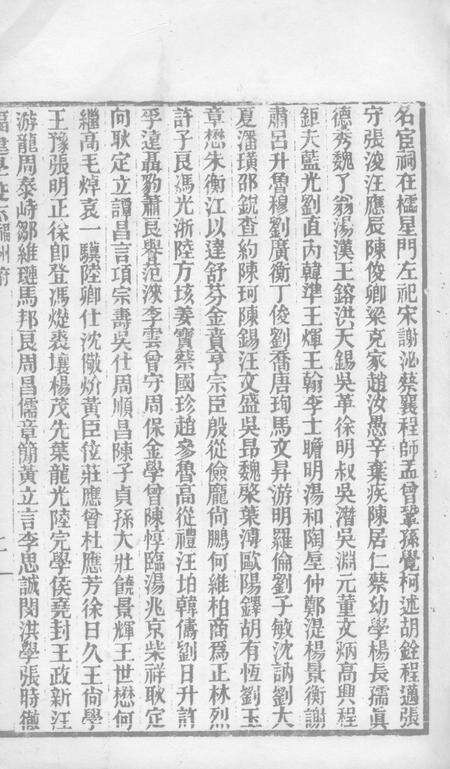 名宦祠在櫺星門左祀宋謝泌蔡襄程師孟曾鞏孫覺柯述胡銓程邁張
守張浚汪應辰陳俊卿梁克家趙汝愚辛棄疾陳居仁蔡幼學楊長孺眞
德秀魏了翁湯漢王鎔洪天錫吳革徐明叔吳潛吳淵元董文炳高興程
鉅夫藍光劉直內韓準王煇王翰李士瞻明湯和陶垕仲鄭湜楊景衡謝
肅呂升魯穆劉廣衡丁俊劉喬唐珣馬文昇游明羅倫劉子敏沈訥劉大
夏潘璜邵銳查約陳珂陳錫汪文盛吳昂魏棨葉溥歐陽鐸胡有恆劉玉
章懋朱衡江以達舒芬金賁亨宗臣殷從儉龐尙鵬何維柏商爲正林烈
許孚遠馮光浙陸万垓姜寶蔡國珍趙參魯高從禮汪珀韓儔劉日升許
孚遠聶豹蕭艮譽范淶李雲曾守周保金學曾陳惇臨湯兆京柴祥耿定
向耿定立譚昌言項宗壽吳仕周順昌陳子貞孫大壯饒景輝王世懋何
繼高毛焯袁一驥陸卿仕沈儆炌黃臣位莊應曾杜應芳徐日久王尙學
王豫張明正徐即登馮熒裘壤楊茂先葉龍光陸完學侯堯封王政新汪
游龍周泰峙鄒維璉馬邦艮周昌儒章簡黃立言李思誠閔洪學張時德